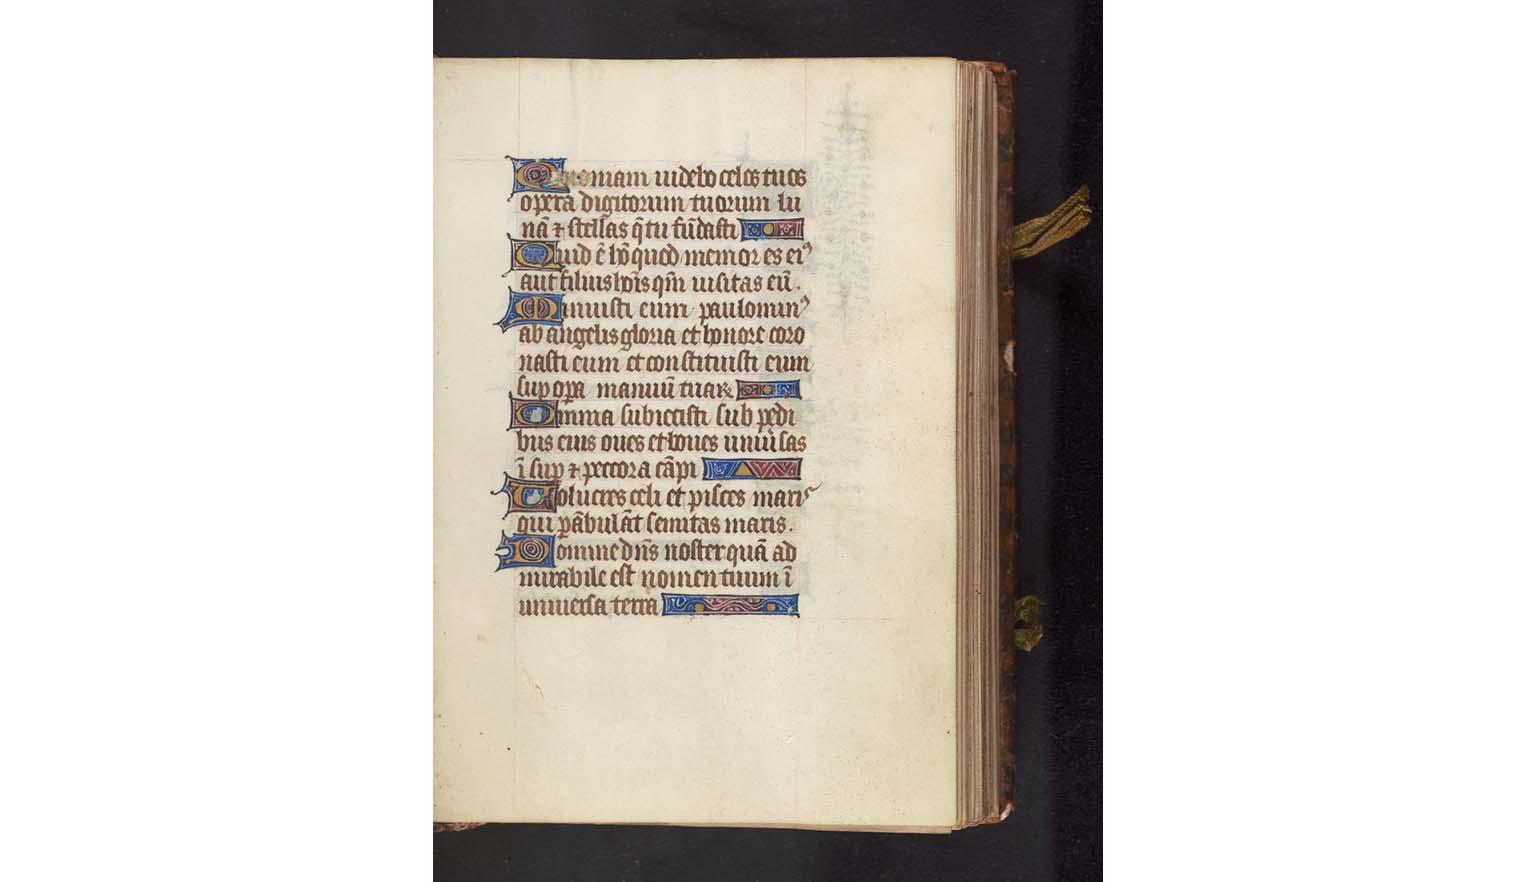 Quoniam uidebo celos tuos
opera digitorum tuorum lu
nā ⁊ stellas q̄ tu fūdasti
Quid ē hō quod memor es eiꝰ
aut filius hoīs qm̄ uisitas eū.
Minuisti eum paulominꝰ
ab angelis gloria et honore coro
nasti eum et constituisti eum
sup opa manuū tuaꝝ
Omnia subiecisti sub pedi
bus eius oues et boues uniūsas
ī sup ⁊ peccora cāpi
Uolucres celi et pisces maris
qui pābulāt semitas maris.
Domine dn̄s noster quā ad
mirabile est nomen tuum ī
uniuersa terra